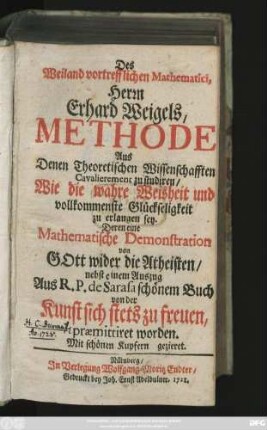 Des
Weiland vortrefflichen Mathematici,
Herrn
Erhard Weigels,
METHODE
Aus
Denen Theoretischen Wissenschafften
Cavalierement zu studiren,
Wie die wahre Weisheit und
vollkommenste Glückseligkeit
zu erlangen sey.
Deren eine
Mathematische Demonstration
von
GOtt wider die Atheisten,
nebst einem Auszug
Aus R. P. de Sarasa schönem Buch
von der
Kunst sich stets zu freuen,
præmittiret worden.
Mit schönen Kupfern gezieret.
Nürnberg,
In Verlegung Wolfgang Moritz Endter,
Gedruckt bey Joh. Ernst Adelbulner.